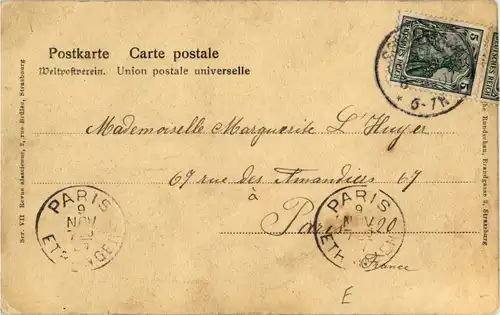 Postkarte Carte postale
Weltpostverein. Union postale universelle
Ser. VII Revue alsacienne, 2, rue Brûlée, Strasbourg
DEUTSCHES REICH
5 5
* 6-7 N.
Mademoiselle Marguerite L'Huyer
67 rue des Amandiers 67
à
Paris 20
France
PARIS
9
NOV
ETRANGER
PARIS
9
NOV
ETRANGER
Rundschau, Brandgasse 2, Strassburg
E